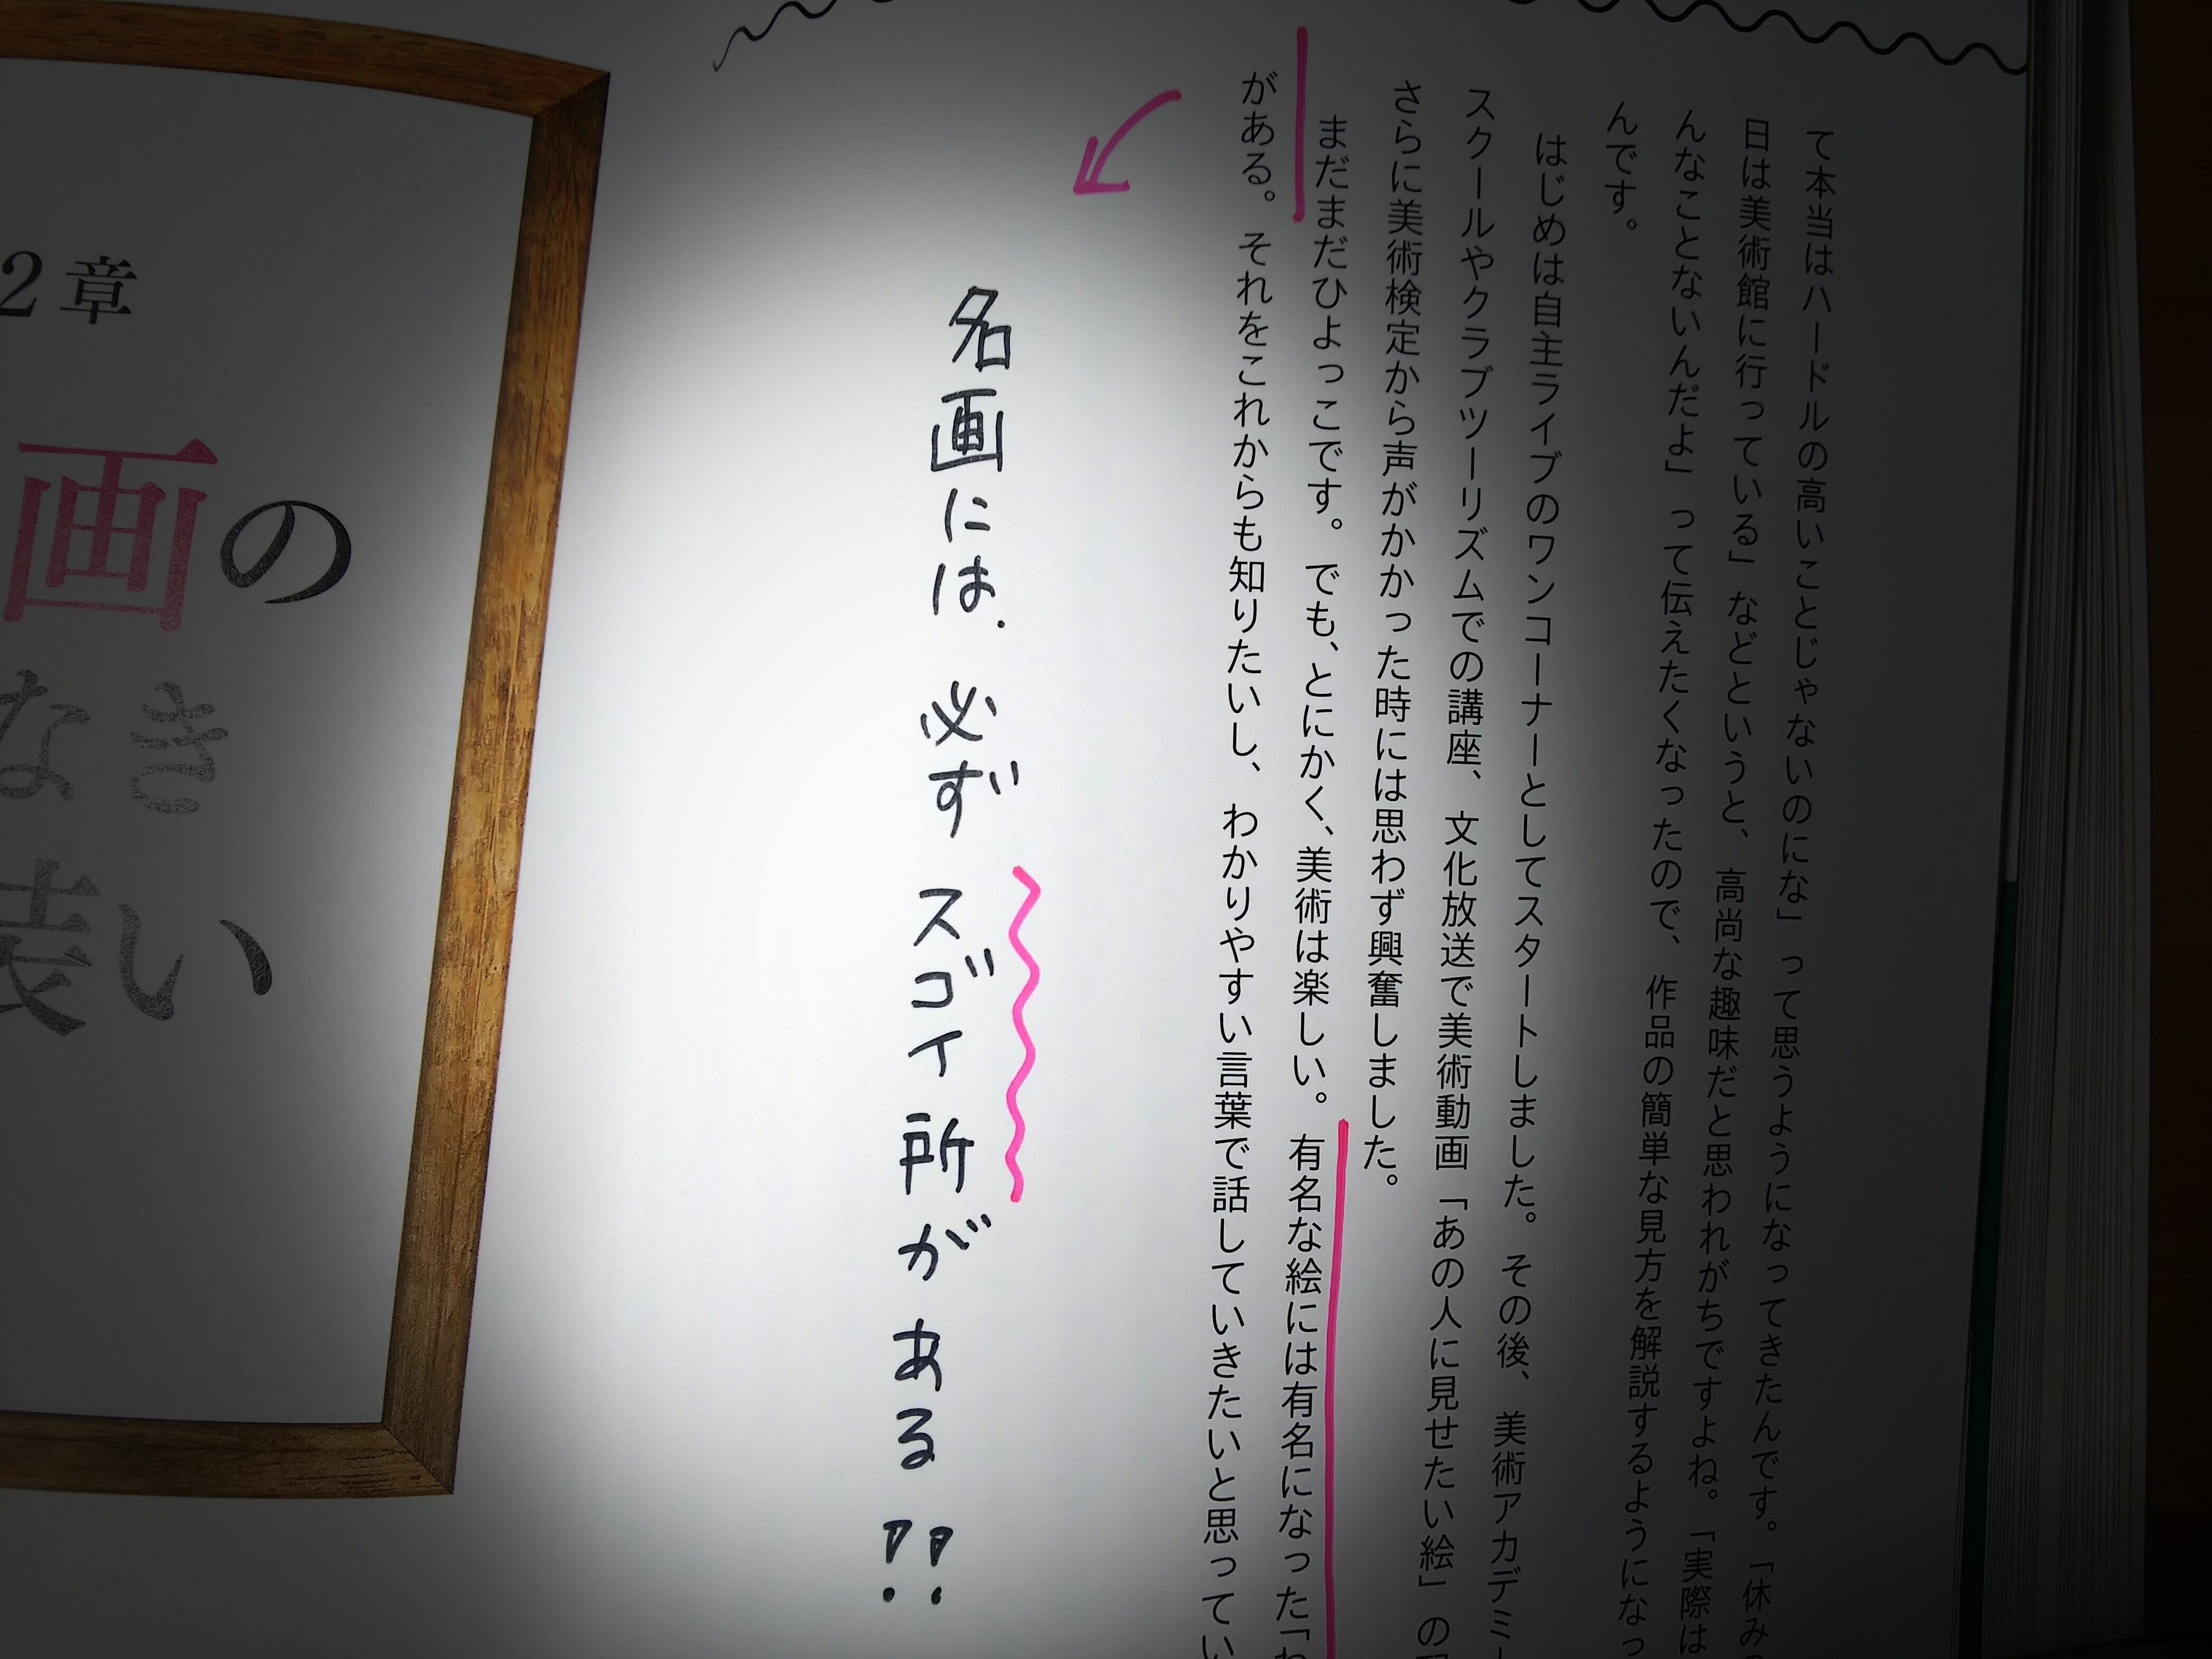 て本当はハードルの高いことじゃないのにな」って思うようになってきたんです。「休み
日は美術館に行っている」などというと、高尚な趣味だと思われがちですよね。「実際は
んなことないんだよ」って伝えたくなったので、作品の簡単な見方を解説するようになっ
んです。
はじめは自主ライブのワンコーナーとしてスタートしました。その後、美術アカデミー
スクールやクラブツーリズムでの講座、文化放送で美術動画「あの人に見せたい絵」の
さらに美術検定から声がかかった時には思わず興奮しました。
まだまだひよっこです。でも、とにかく、美術は楽しい。有名な絵には有名になった「わ
がある。それをこれからも知りたいし、わかりやすい言葉で話していきたいと思ってい
名画には、必ずスゴイ所がある??
2章
画の
なき
装い